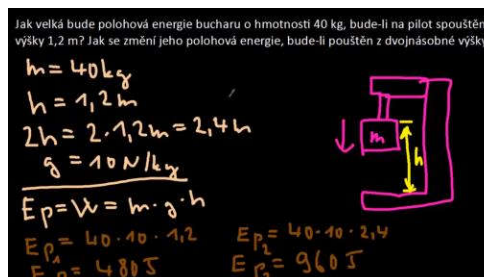 Jak velká bude polohová energie bucharu o hmotnosti 40 kg, bude-li na pilot spouštěn
výšky 1,2 m? Jak se změní jeho polohová energie, bude-li pouštěn z dvojnásobné výšky
m = 40kg
h = 1,2m
2h = 2·1,2m = 2,4m
g = 10N/kg
Ep = W = m·g·h
Ep1 = 40·10·1,2 Ep2 = 40·10·2,4
Ep1 = 480J Ep2 = 960J
m
h